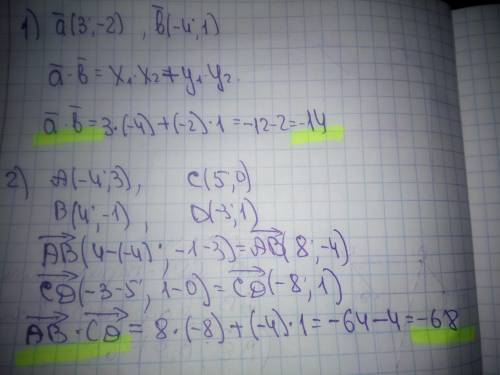 1) a̅(3;-2) , b̅(-4;1)
a̅·b̅ = x₁·x₂+y₁·y₂.
a̅·b̅ = 3·(-4)+(-2)·1 = -12-2=-14
2) A(-4;3), C(5;0)
B(4;-1), D(-3;1)
A͞B(4-(-4); -1-3) = A͞B(8;-4)
C͞D(-3-5; 1-0) = C͞D(-8;1)
A͞B·C͞D = 8·(-8)+(-4)·1 = -64-4=-68